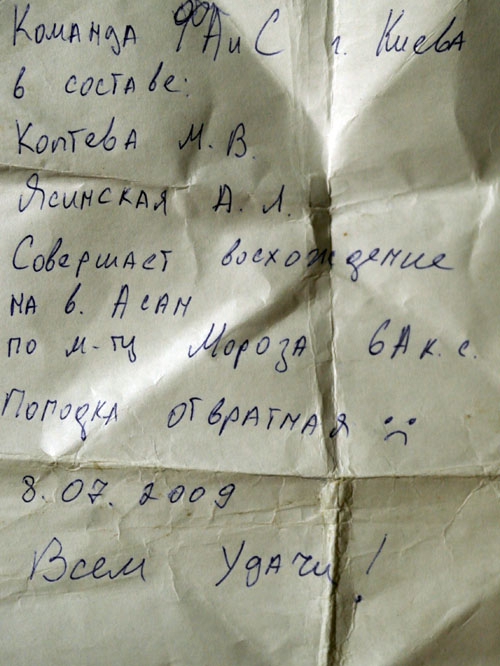 Команда ФАиС г. Киева
в составе:
Коптева М. В.
Ясинская А. Л.
Совершает восхождение
на в. Асан
по м-ту Мороза 6А к. с.
Погодка отвратная :(
8.07.2009
Всем Удачи!